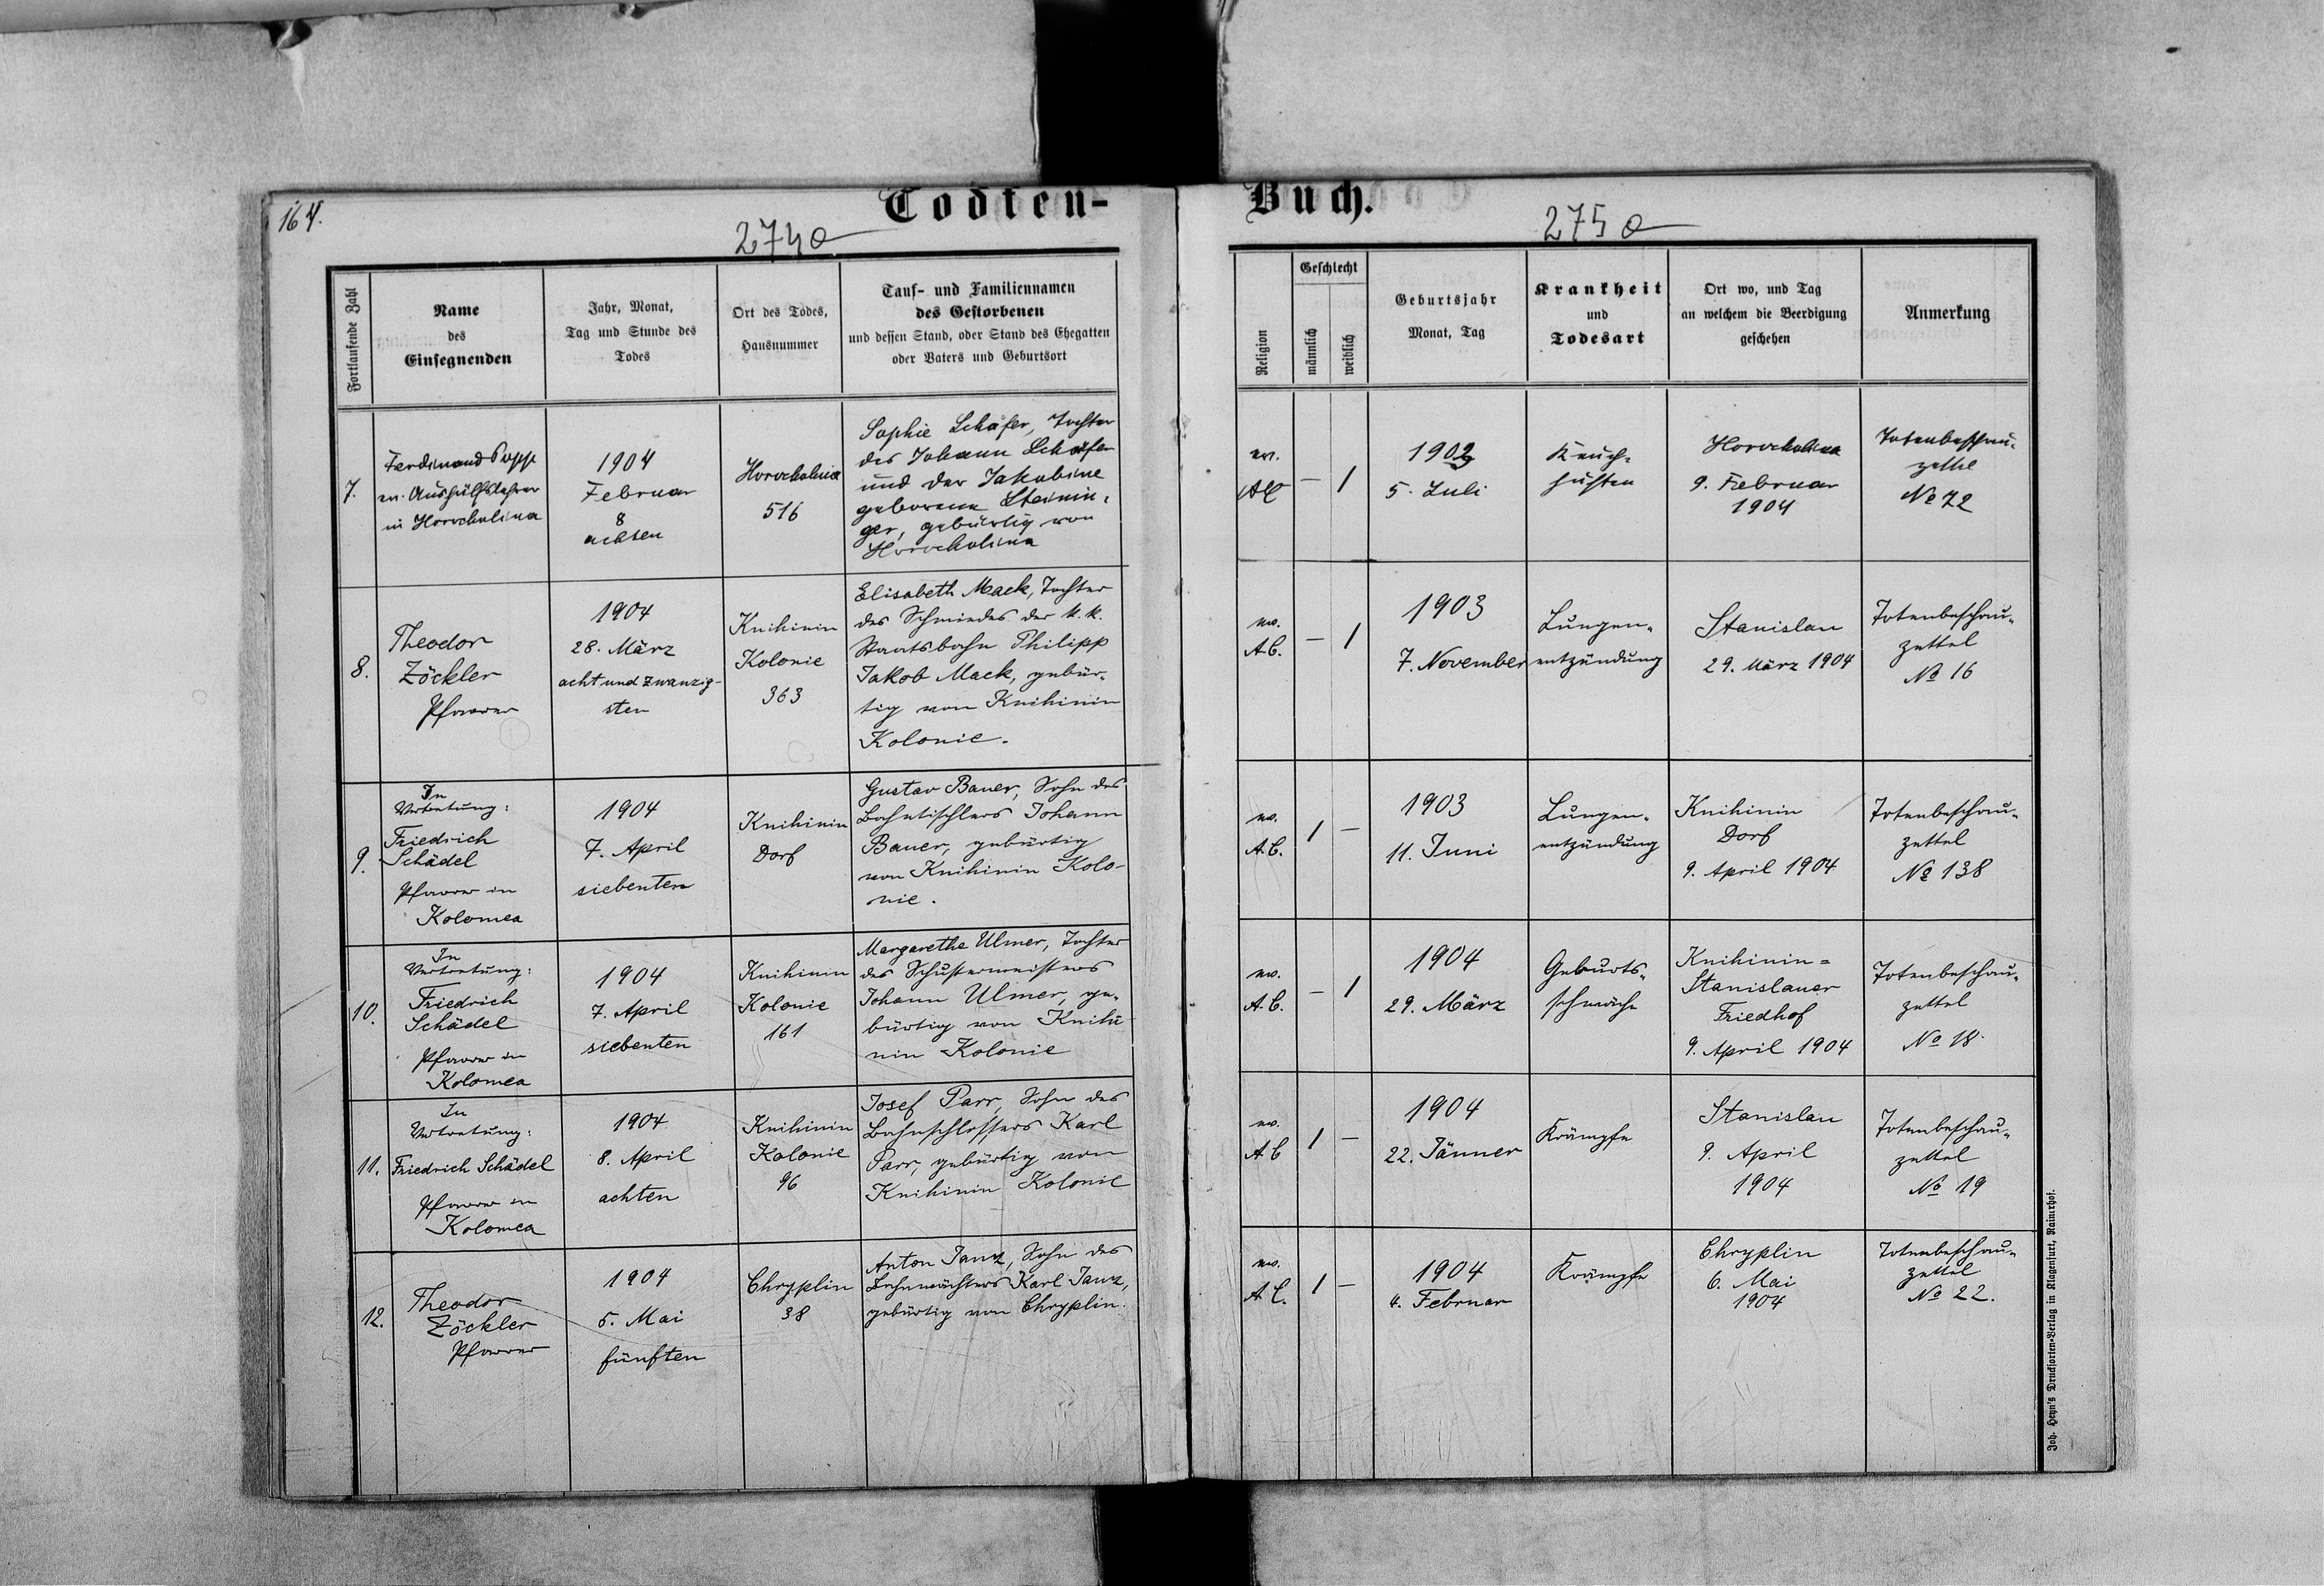 164.
Todten-
Buch.
274a
275a
Fortlaufende Zahl
Name
des
Einsegnenden
Jahr, Monat,
Tag und Stunde des
Todes
Ort des Todes,
Hausnummer
Tauf- und Familiennamen
des Gestorbenen
und dessen Stand, oder Stand des Ehegatten
oder Vaters und Geburtsort
Religion
Geschlecht
männlich
weiblich
Geburtsjahr
Monat, Tag
Krankheit
und
Todesart
Ort wo, und Tag
an welchem die Beerdigung
geschehen
Anmerkung
7.
Ferdinand Popp
ev. Aushülfslehrer
in Horocholina
1904
Februar
8
achten
Horocholina
516
Sophie Schäfer, Tochter
des Johann Schäfer
und der Jakobine
geborene Steinin-
ger, gebürtig von
Horocholina
ev.
AC
–
1
1902
5. Juli
Keuch-
husten
Horocholina
9. Februar
1904
Totenbeschau-
zettel
No 72
8.
Theodor
Zöckler
Pfarrer
1904
28. März
acht und zwanzig-
sten
Knihinin
Kolonie
363
Elisabeth Mack, Tochter
des Schmiedes der k. k.
Staatsbahn Philipp
Jakob Mack, gebür-
tig von Knihinin
Kolonie.
ev.
A.C.
–
1
1903
7. November
Lungen-
entzündung
Stanislau
29. März 1904
Totenbeschau-
zettel
No 16
9.
In
Vertretung:
Friedrich
Schädel
Pfarrer in
Kolomea
1904
7. April
siebenten
Knihinin
Dorf
Gustav Bauer, Sohn des
Bahntischlers Johann
Bauer, gebürtig
von Knihinin Kolo-
nie.
ev.
A.C.
1
–
1903
11. Juni
Lungen-
entzündung
Knihinin
Dorf
9. April 1904
Totenbeschau-
zettel
No 138
10.
In
Vertretung:
Friedrich
Schädel
Pfarrer in
Kolomea
1904
7. April
siebenten
Knihinin
Kolonie
161
Margarethe Ulmer, Tochter
des Schustermeisters
Johann Ulmer, ge-
bürtig von Knihi-
nin Kolonie
ev.
A.C.
–
1
1904
29. März
Geburts-
schwäche
Knihinin=
Stanislauer
Friedhof
9. April 1904
Totenbeschau-
zettel
No 18.
11.
In
Vertretung:
Friedrich Schädel
Pfarrer in
Kolomea
1904
8. April
achten
Knihinin
Kolonie
96
Josef Parr, Sohn des
Bahnschlossers Karl
Parr, gebürtig von
Knihinin Kolonie
ev.
A.C
1
–
1904
22. Jänner
Krämpfe
Stanislau
9. April
1904
Totenbeschau-
zettel
No 19
12.
Theodor
Zöckler
Pfarrer
1904
5. Mai
fünften
Chryplin
38
Anton Janz, Sohn des
Bahnwächters Karl Janz,
gebürtig von Chryplin.
ev.
A.C.
1
–
1904
4. Februar
Krämpfe
Chryplin
6. Mai
1904
Totenbeschau-
zettel
No 22.
Joh. Heyn's Drucksorten-Verlag in Klagenfurt, Rainerhof.